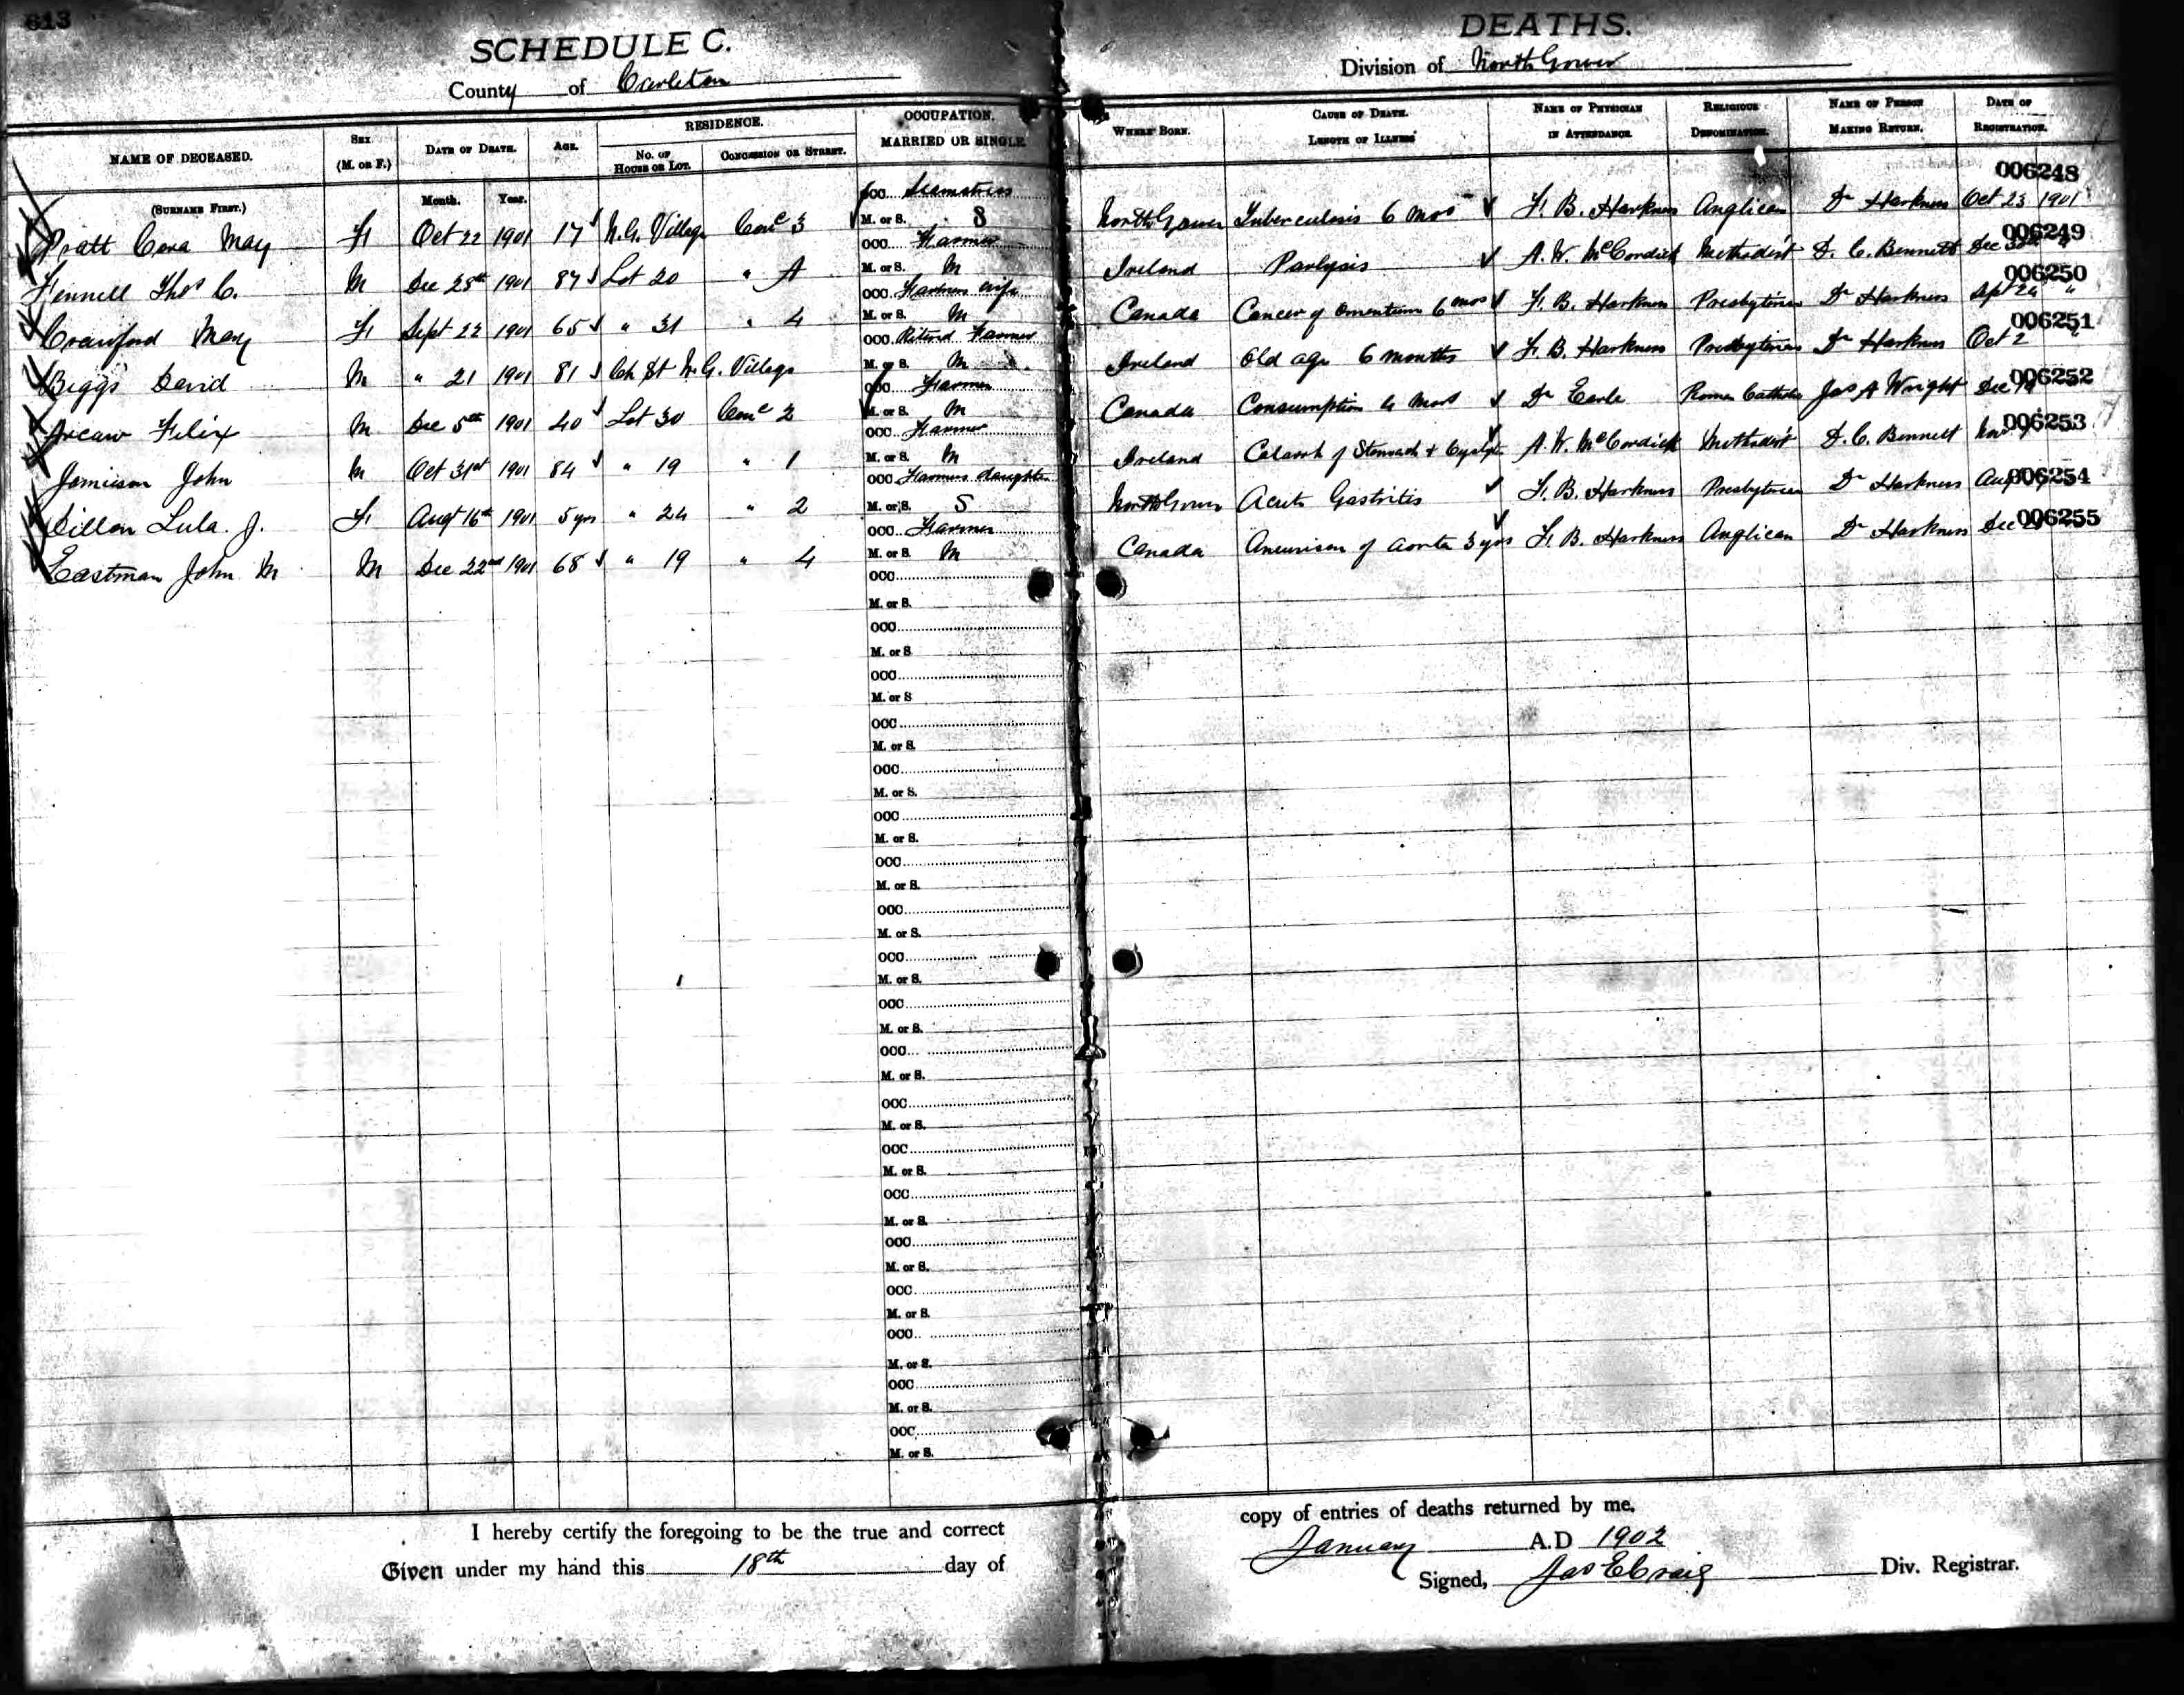 613
SCHEDULE C.
DEATHS.
County of Carleton
Division of North Gower
NAME OF DECEASED.
(SURNAME FIRST.)
SEX
(M. OR F.)
DATE OF DEATH.
Month. Year.
AGE.
RESIDENCE.
NO. OF HOUSE OR LOT.
CONCESSION OR STREET.
OCCUPATION.
MARRIED OR SINGLE.
WHERE BORN.
CAUSE OF DEATH.
LENGTH OF ILLNESS
NAME OF PHYSICIAN
IN ATTENDANCE.
RELIGIOUS
DENOMINATION.
NAME OF PERSON
MAKING RETURN.
DATE OF
REGISTRATION.
006248
Pratt Cora May F. Oct 22 1901 17 N.G. Village Conc 3 OCC. Seamstress M. or S. S North Gower Tuberculosis 6 mos F. B. Harkness Anglican Dr Harkness Oct 23 1901
006249
Fennell Thos C. M Dec 28th 1901 87 Lot 20 " A OCC. Farmer M. or S. M Ireland Parlysis A. W. McCordick Methodist D. C. Bennett Dec
006250
Crawford Mary F. Sept 22 1901 65 " 31 " 4 OCC. Farmers wife M. or S. M Canada Cancer of Omentum 6 mos F. B. Harkness Presbyterian Dr Harkness Sept 24 "
006251
Biggs David M " 21 1901 81 Ch St N.G. Village OCC. Retired Farmer M. or S. M Ireland Old age 6 months F. B. Harkness Presbyterian Dr Harkness Oct 2 "
006252
Arcaw Felix M Dec 5th 1901 40 Lot 30 Conc 2 OCC. Farmer M. or S. M Canada Consumption 6 mos Dr Earle Roman Catholic Jas A Wright Dec
006253
Jamieson John M Oct 31st 1901 84 " 19 " 1 OCC. Farmer M. or S. M Ireland Catarrh of Stomach + A. W. McCordick Methodist D. C. Bennett Nov
006254
Dillon Lula. J. F. Augt 16th 1901 5 yrs " 24 " 2 OCC. Farmers daughter M. or S. S North Gower Acute Gastritis F. B. Harkness Presbyterian Dr Harkness Aug
006255
Eastman John M M Dec 22nd 1901 68 " 19 " 4 OCC. Farmer M. or S. M Canada Aneurism of aorta 3 yrs F. B. Harkness Anglican Dr Harkness Dec
OCC.
M. or S.
OCC.
M. or S.
OCC.
M. or S.
OCC.
M. or S.
OCC.
M. or S.
OCC.
M. or S.
OCC.
M. or S.
OCC.
M. or S.
OCC.
M. or S.
OCC.
M. or S.
OCC.
M. or S.
OCC.
M. or S.
OCC.
M. or S.
OCC.
M. or S.
OCC.
M. or S.
OCC.
M. or S.
OCC.
M. or S.
OCC.
M. or S.
OCC.
M. or S.
I hereby certify the foregoing to be the true and correct copy of entries of deaths returned by me.
Given under my hand this 18th day of January A.D 1902
Signed, Jas E Craig Div. Registrar.